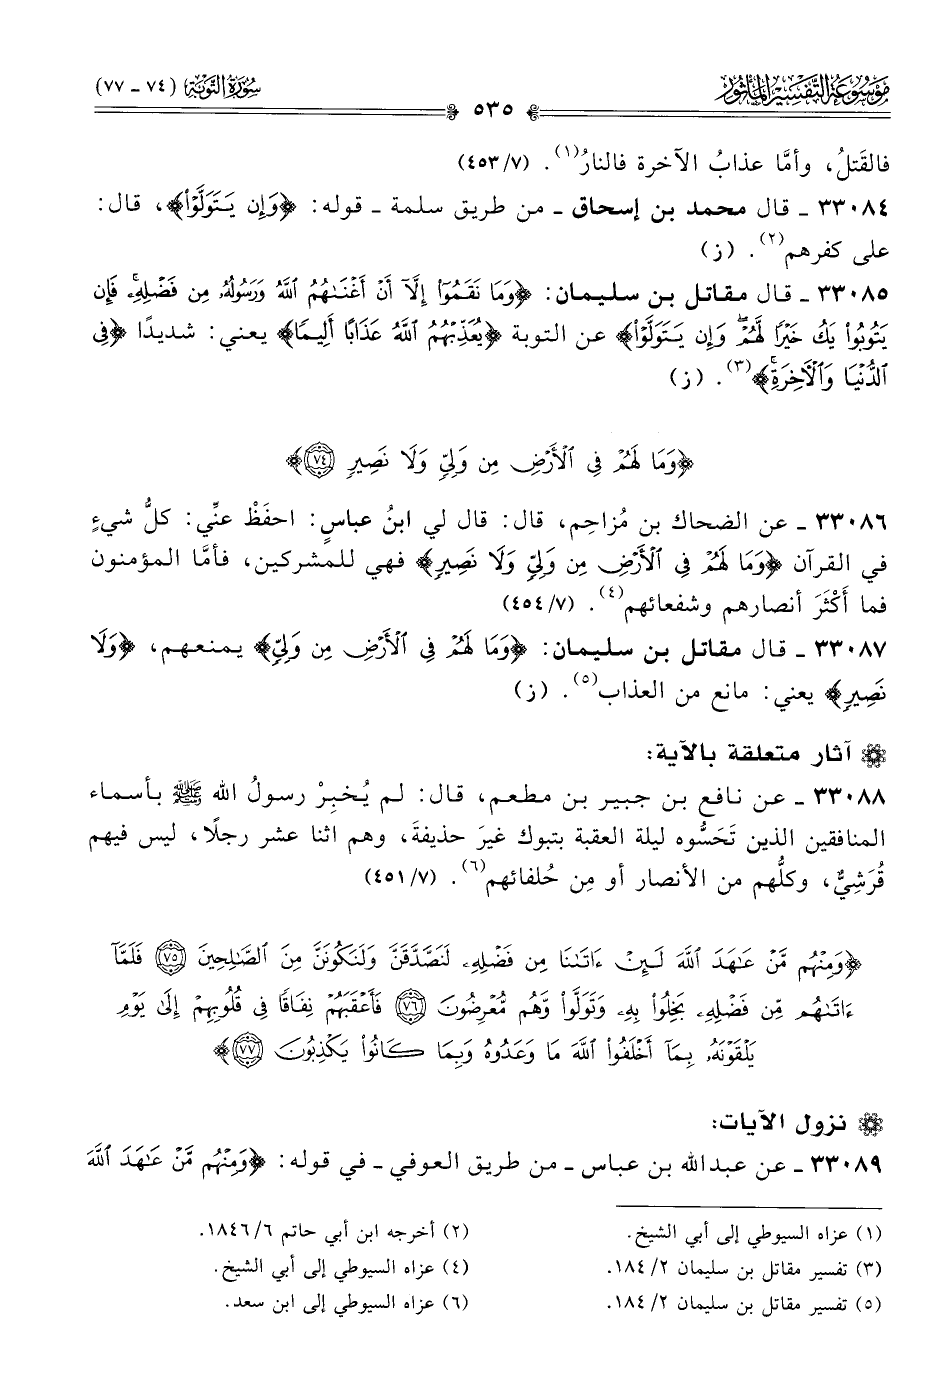 مَوْسُوعَةُ التَّفْسِيرِ المَأْثُور
٥٣٥
سُورَةُ التَّوْبَة (٧٤ - ٧٧)
فالقَتلُ، وأمَّا عذابُ الآخرة فالنارُ(١). (٤٥٣/٧)
٣٣٠٨٤ ـ قال محمد بن إسحاق ـ من طريق سلمة ـ قوله: ﴿وَإِن يَتَوَلَّوْا۟﴾، قال:
على كفرهم(٢). (ز)
٣٣٠٨٥ ـ قال مقاتل بن سليمان: ﴿وَمَا نَقَمُوٓا۟ إِلَّآ أَنْ أَغْنَىٰهُمُ ٱللَّهُ وَرَسُولُهُۥ مِن فَضْلِهِۦۚ فَإِن
يَتُوبُوا۟ يَكُ خَيْرًا لَّهُمْۖ وَإِن يَتَوَلَّوْا۟﴾ عن التوبة ﴿يُعَذِّبْهُمُ ٱللَّهُ عَذَابًا أَلِيمًا﴾ يعني: شديدًا ﴿فِى
ٱلدُّنْيَا وَٱلْـَٔاخِرَةِۚ﴾(٣). (ز)
﴿وَمَا لَهُمْ فِى ٱلْأَرْضِ مِن وَلِىٍّ وَلَا نَصِيرٍ ٧٤﴾
٣٣٠٨٦ ـ عن الضحاك بن مُزاحِم، قال: قال لي ابنُ عباسٍ: احفَظْ عنِّي: كلُّ شيءٍ
في القرآن ﴿وَمَا لَهُمْ فِى ٱلْأَرْضِ مِن وَلِىٍّ وَلَا نَصِيرٍ﴾ فهي للمشركين، فأمَّا المؤمنون
فما أَكْثَرَ أنصارهم وشفعائهم(٤). (٤٥٤/٧)
٣٣٠٨٧ ـ قال مقاتل بن سليمان: ﴿وَمَا لَهُمْ فِى ٱلْأَرْضِ مِن وَلِىٍّ﴾ يمنعهم، ﴿وَلَا
نَصِيرٍ﴾ يعني: مانع من العذاب(٥). (ز)
آثار متعلقة بالآية:
٣٣٠٨٨ ـ عن نافع بن جبير بن مطعم، قال: لم يُخبِرْ رسولُ الله ﷺ بأسماء
المنافقين الذين تَحَسُّوه ليلة العقبة بتبوك غيرَ حذيفةَ، وهم اثنا عشر رجلًا، ليس فيهم
قُرَشِيٌّ، وكلُّهم من الأنصار أو مِن حُلفائهم(٦). (٤٥١/٧)
﴿وَمِنْهُم مَّنْ عَـٰهَدَ ٱللَّهَ لَئِنْ ءَاتَىٰنَا مِن فَضْلِهِۦ لَنَصَّدَّقَنَّ وَلَنَكُونَنَّ مِنَ ٱلصَّـٰلِحِينَ ٧٥ فَلَمَّآ
ءَاتَىٰهُم مِّن فَضْلِهِۦ بَخِلُوا۟ بِهِۦ وَتَوَلَّوا۟ وَّهُم مُّعْرِضُونَ ٧٦ فَأَعْقَبَهُمْ نِفَاقًا فِى قُلُوبِهِمْ إِلَىٰ يَوْمِ
يَلْقَوْنَهُۥ بِمَآ أَخْلَفُوا۟ ٱللَّهَ مَا وَعَدُوهُ وَبِمَا كَانُوا۟ يَكْذِبُونَ ٧٧﴾
نزول الآيات:
٣٣٠٨٩ ـ عن عبدالله بن عباس ـ من طريق العوفي ـ في قوله: ﴿وَمِنْهُم مَّنْ عَـٰهَدَ ٱللَّهَ
(١) عزاه السيوطي إلى أبي الشيخ.
(٢) أخرجه ابن أبي حاتم ١٨٤٦/٦.
(٣) تفسير مقاتل بن سليمان ١٨٤/٢.
(٤) عزاه السيوطي إلى أبي الشيخ.
(٥) تفسير مقاتل بن سليمان ١٨٤/٢.
(٦) عزاه السيوطي إلى ابن سعد.